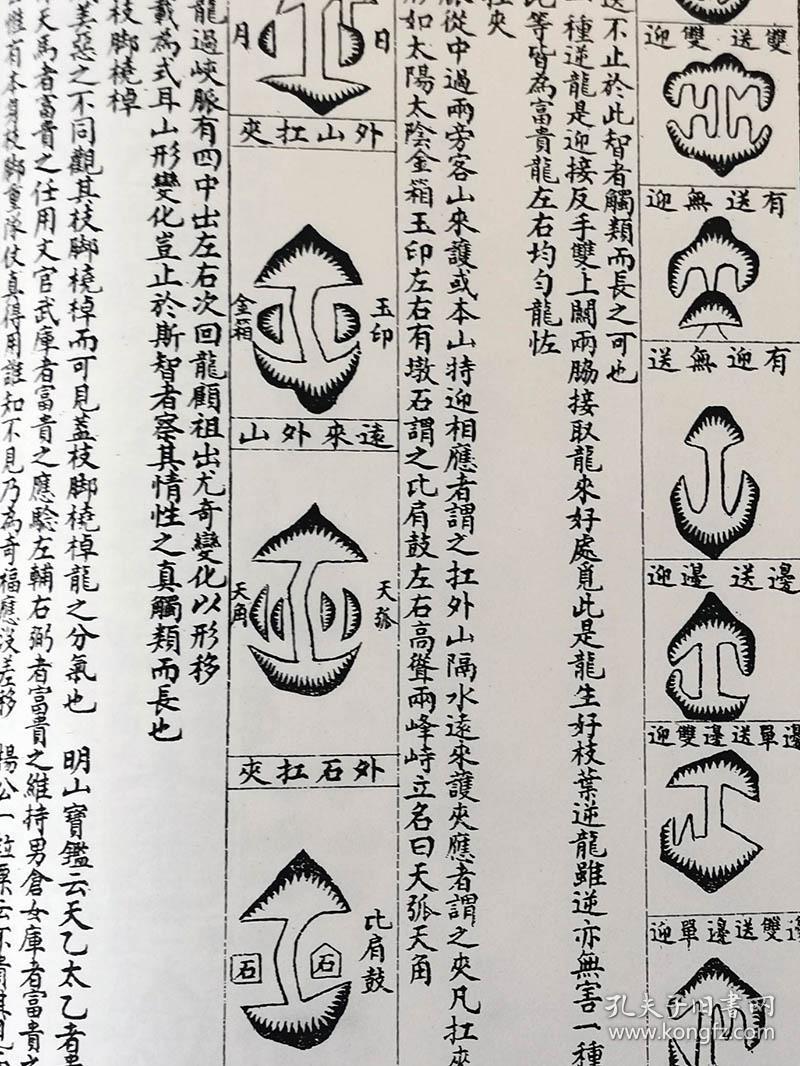 雙送雙迎
有送無迎
有迎無送
邊送邊迎
邊單送邊雙迎
邊雙送邊單迎
送不止於此智者觸類而長之可也
一種逆龍是迎接反手雙上關兩脇接取龍來好處覓此是龍生好枝葉逆龍雖逆亦無害一種
此等皆為富貴龍左右均勻龍恠
扛夾
脈從中過兩旁客山來護或本山特迎相應者謂之扛外山隔水遠來護夾應者謂之夾凡扛夾
形如太陽太陰金箱玉印左右有墩石謂之比肩鼓左右高聳兩峰峙立名曰天弧天角
日
月
外山扛夾
玉印
金箱
遠來外山
天弧
天角
外石扛夾
比肩鼓
石
石
龍過峽脈有四中出左右次回龍顧祖出尤奇變化以形移
載為式耳山形變化豈止於斯智者察其情性之真觸類而長也
枝脚橈棹
美惡之不同觀其枝脚橈棹而可見蓋枝脚橈棹龍之分氣也
明山寶鑑云天乙太乙者
天馬者富貴之任用文官武庫者富貴之應驗左輔右弼者富貴之維持男倉女庫者富貴之
惟有本身枝脚重隊仗真得用誰知不見乃為奇福應沒差移
楊公一粒粟云
孔夫子旧书网
www.kongfz.com